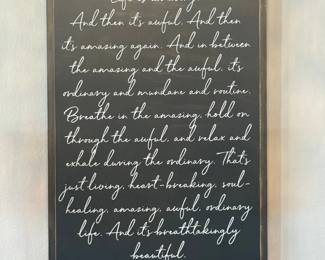 Life is amazing.
And then it's awful. And then
it's amazing again. And in between
the amazing and the awful, it's
ordinary and mundane and routine.
Breathe in the amazing, hold on
through the awful, and relax and
exhale during the ordinary. That's
just living, heart-breaking, soul-
healing, amazing, awful, ordinary
life. And it's breathtakingly
beautiful.